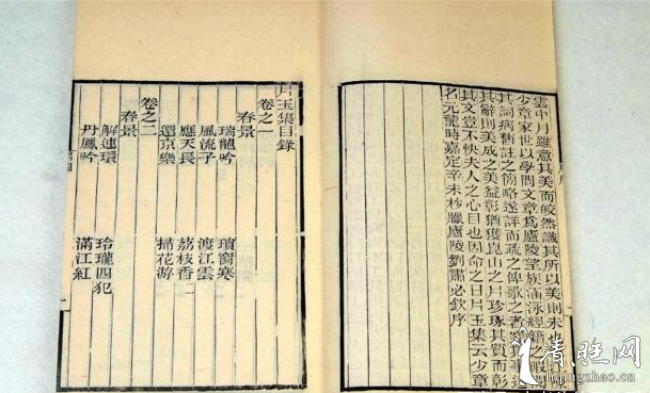 雲中月雖意其美而皎然識其所以美則未也
少章家世以學問文章為廬陵望族涵泳經籍之暇閱
其詞病舊註之簡略遂詳而疏之俾歌之者究其事達
其辭則美成之美益彰猶獲崑山之片珍琢其質而彰
其文豈不快夫人之心目也因命之曰片玉集云少章
名元龍時嘉定辛未杪臘廬陵劉肅必欽序
片玉集目錄
卷之一
春景
瑞龍吟 瑣窗寒
風流子 渡江雲
應天長 荔枝香二
還京樂 掃花游
卷之二
春景
解連環 玲瓏四犯
丹鳳吟 滿江紅